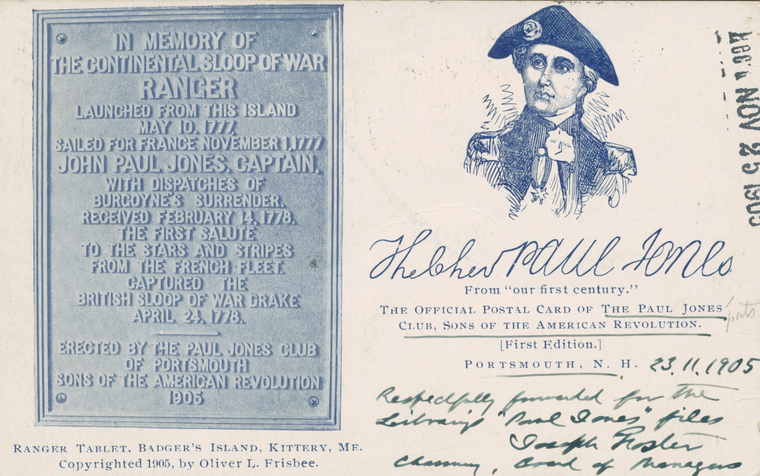 IN MEMORY OF
THE CONTINENTAL SLOOP OF WAR
RANGER
LAUNCHED FROM THIS ISLAND
MAY 10, 1777,
SAILED FOR FRANCE NOVEMBER 1, 1777
JOHN PAUL JONES, CAPTAIN,
WITH DISPATCHES OF
BURGOYNE'S SURRENDER.
RECEIVED FEBRUARY 14, 1778,
THE FIRST SALUTE
TO THE STARS AND STRIPES
FROM THE FRENCH FLEET.
CAPTURED THE
BRITISH SLOOP OF WAR DRAKE
APRIL 24, 1778.
ERECTED BY THE PAUL JONES CLUB
OF PORTSMOUTH
SONS OF THE AMERICAN REVOLUTION
1905
RANGER TABLET, BADGER'S ISLAND, KITTERY, ME.
Copyrighted 1905, by Oliver L. Frisbee.
PAUL JONES
From "our first century."
THE OFFICIAL POSTAL CARD OF THE PAUL JONES
CLUB, SONS OF THE AMERICAN REVOLUTION.
[First Edition.]
PORTSMOUTH, N. H. 23.11.1905
Respectfully forwarded for the
Library's "Paul Jones" files
Joseph Foster
Board of Managers
NOV 25 1905